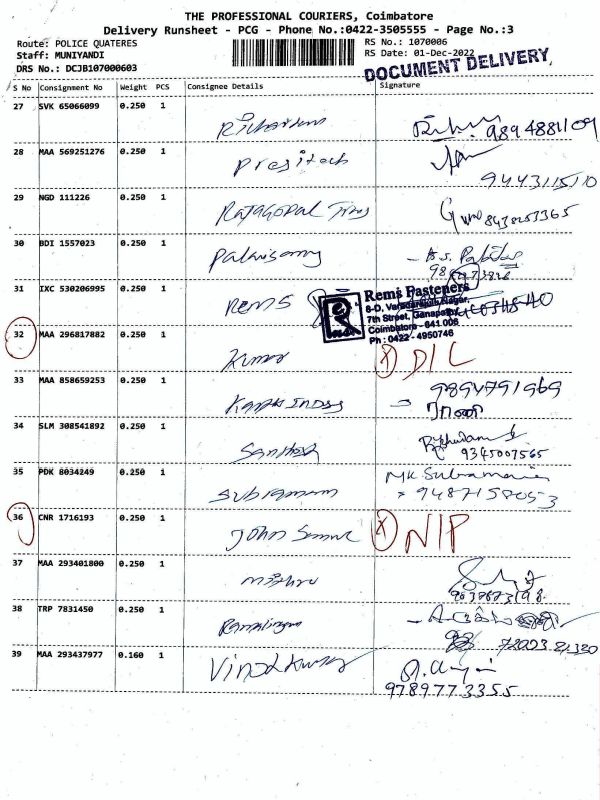 THE PROFESSIONAL COURIERS, Coimbatore
Delivery Runsheet - PCG - Phone No.:0422-3505555 - Page No.:3
Route: POLICE QUATERES
RS No.: 1070006
Staff: MUNIYANDI
RS Date: 01-Dec-2022
DRS No.: DCJB107000603
DOCUMENT DELIVERY
S No Consignment No Weight PCS Consignee Details Signature
27 SVK 65066099 0.250 1
9894881109
28 MAA 569251276 0.250 1
9443115110
29 NGD 111226 0.250 1 RAJAGOPAL
8438253365
30 BDI 1557023 0.250 1 Palanisamy
31 IXC 530206995 0.250 1 REMS
Rems Fasteners
7th Street, Ganapathy,
Coimbatore - 641 006
Ph : 0422 - 4950746
32 MAA 296817882 0.250 1 Kumar
X D/L
33 MAA 858659253 0.250 1
9894791969
34 SLM 308541892 0.250 1 Santhosh
9345007565
35 PDK 8034249 0.250 1 Subramani
9487158053
36 CNR 1716193 0.250 1 John
X N/P
37 MAA 293401800 0.250 1
38 TRP 7831450 0.250 1 Ramalingam
39 MAA 293437977 0.160 1 Vinodkumar
9789773355